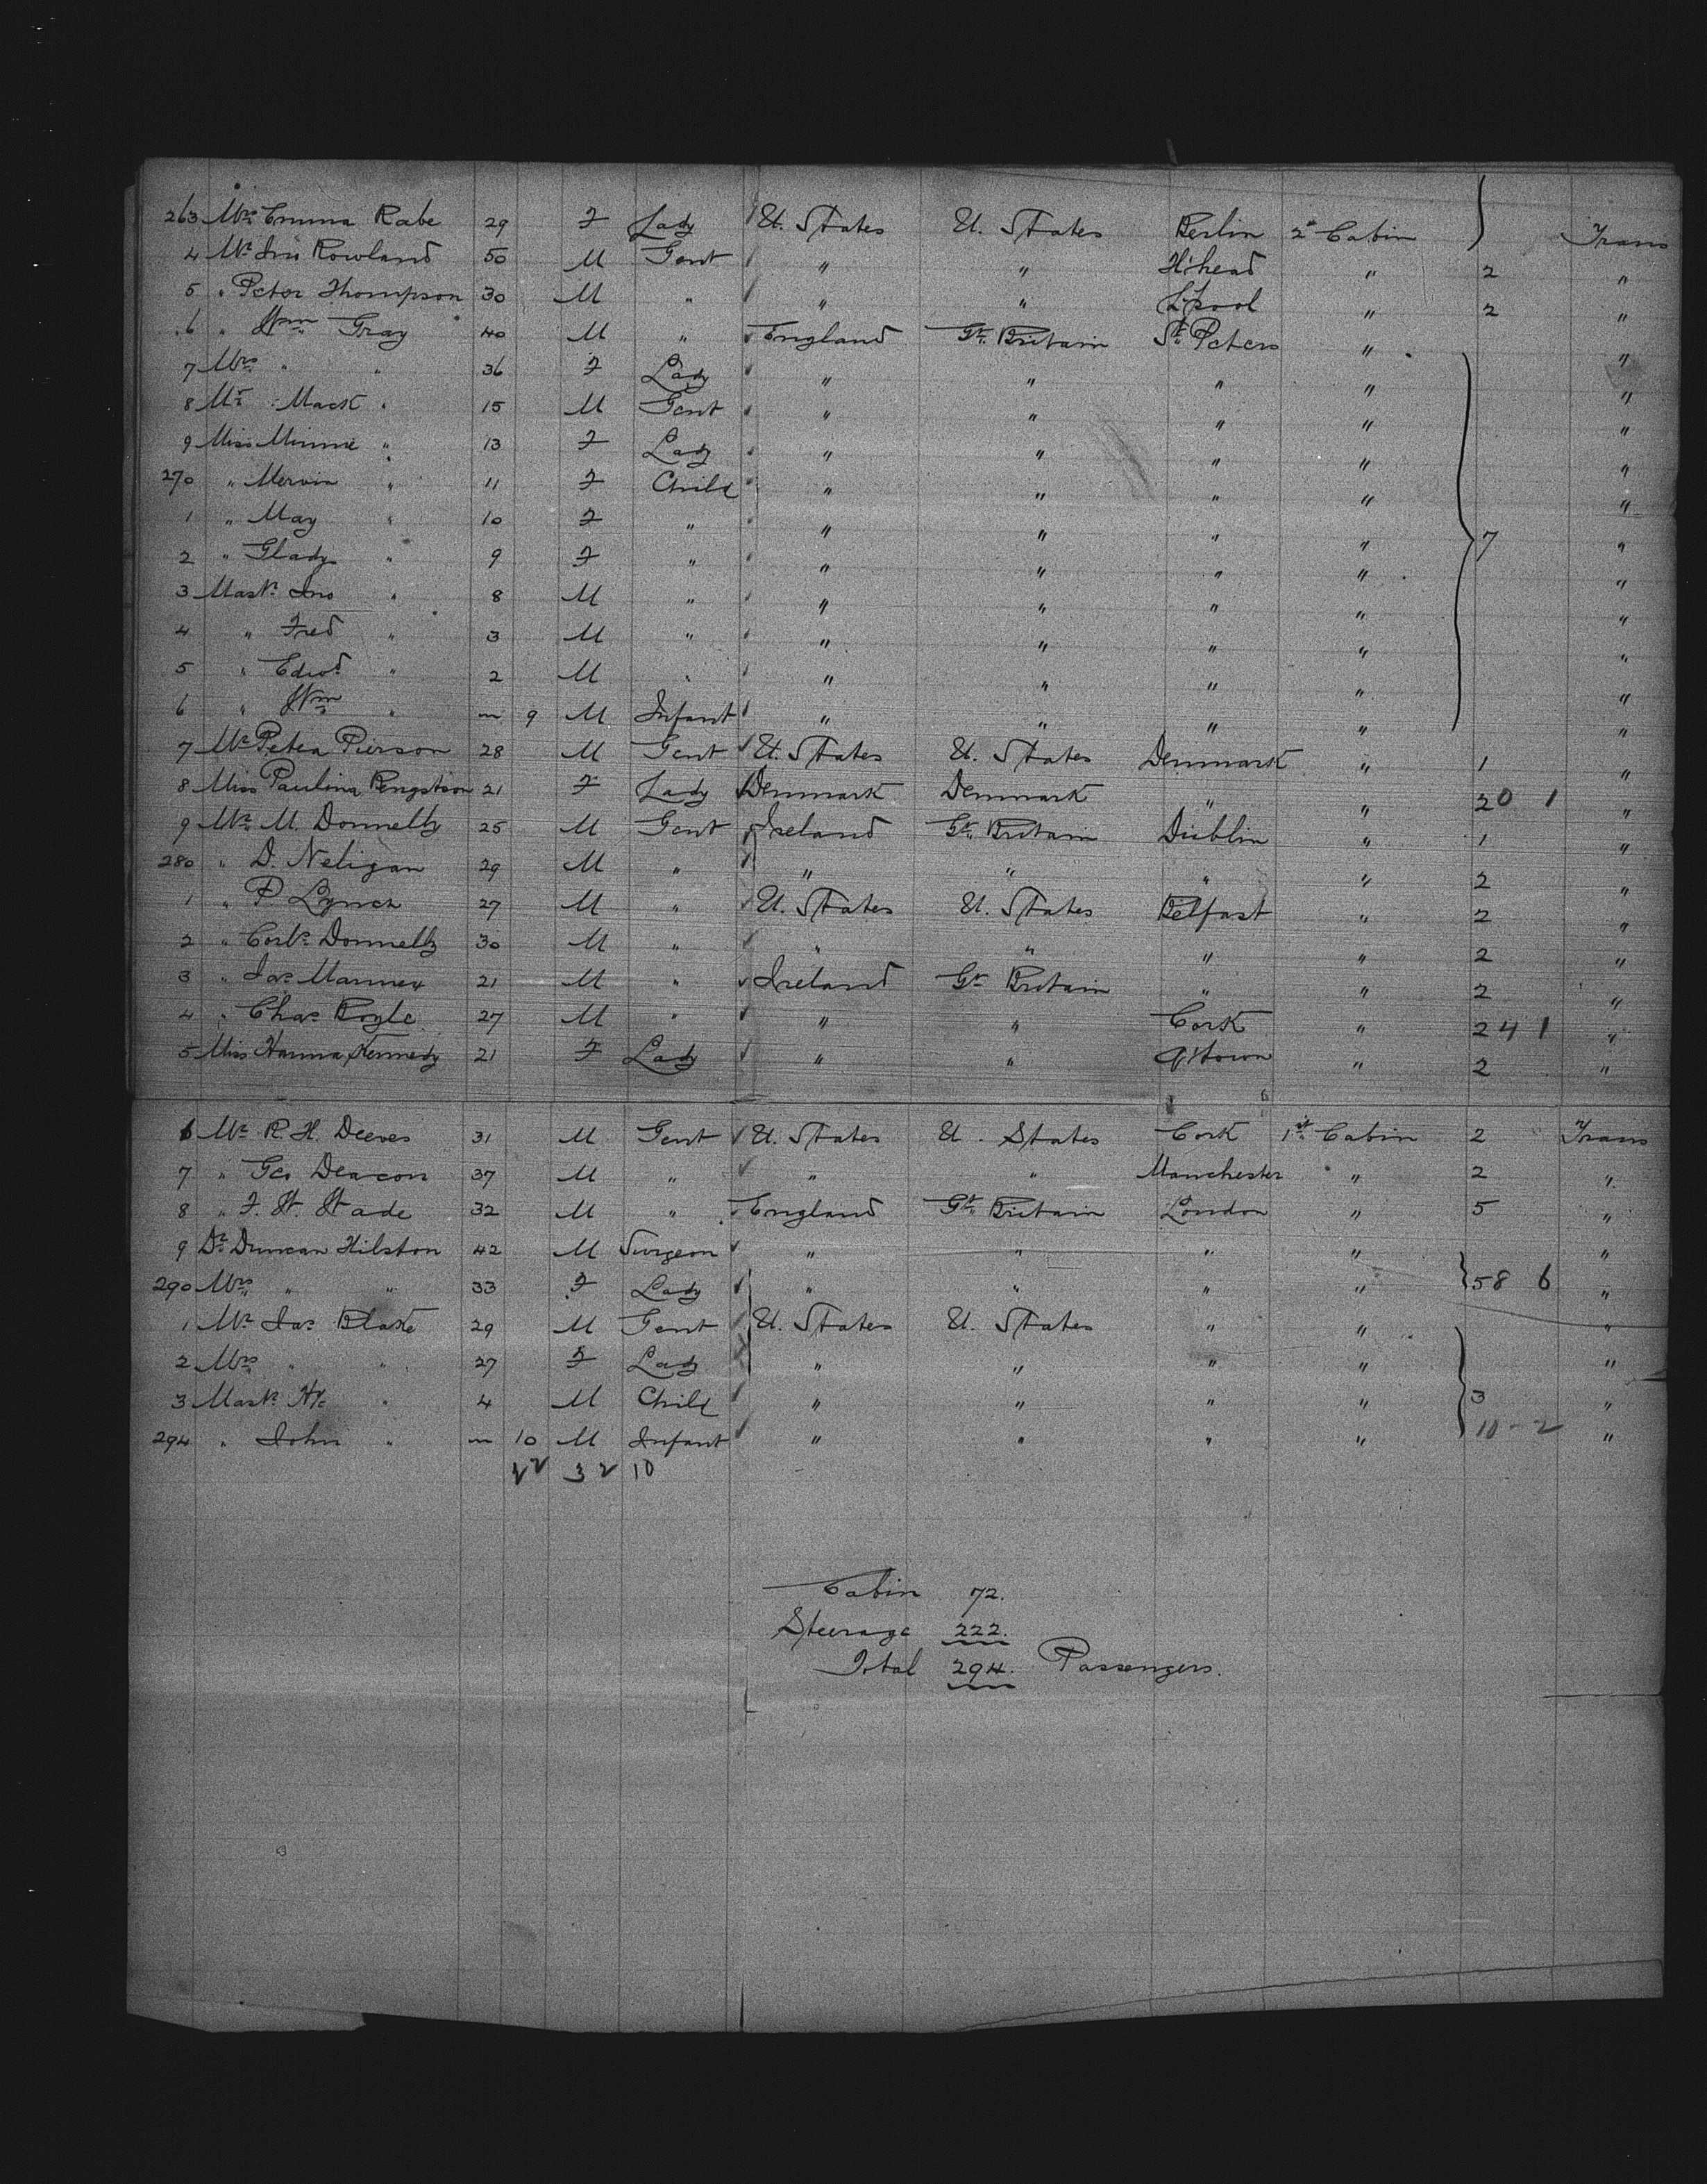 263 Mrs Emma Rabe 29 F Lady U. States U. States Berlin 2d Cabin Trans
4 Mr Jno Rowland 50 M Gent " " H'head " 2 "
5 " Peter Thompson 30 M " " " L'pool " 2 "
6 " Wm Gray 40 M " England Gt Britain St Peters " "
7 Mrs " " 36 F Lady " " " " "
8 Mr Mack " 15 M Gent " " " " "
9 Miss Minnie " 13 F Lady " " " " "
270 " Mervin " 11 F Child " " " " "
1 " May " 10 F " " " " " "
2 " Gladys " 9 F " " " " " 7 "
3 Mastr Jno " 8 M " " " " " "
4 " Fred " 3 M " " " " " "
5 " Edwd " 2 M " " " " " "
6 " Wm " 9 M Infant " " " " "
7 Mr Peter Pierson 28 M Gent U. States U. States Denmark " 1 "
8 Miss Paulina Rengstson 21 F Lady Denmark Denmark " " 20 1 "
9 Mr M. Donnelly 25 M Gent Ireland Gt Britain Dublin " 1 "
280 " D. Neligan 29 M " " " " " 2 "
1 " P. Lynch 27 M " U. States U. States Belfast " 2 "
2 " Donnelly 30 M " " " " " 2 "
3 " Jas 21 M " Ireland Gt Britain " " 2 "
4 " Chas Boyle 27 M " " " Cork " 24 1 "
5 Miss Hanna Kennedy 21 F Lady " " Q'town " 2 "
6 Mr R. H. Deeves 31 M Gent U. States U. States Cork 1st Cabin 2 Trans
7 " Geo Deacon 37 M " " " Manchester " 2 "
8 " F. W. Wade 32 M " England Gt Britain London " 5 "
9 Dr Duncan Hilston 42 M Surgeon " " " " "
290 Mrs " " 33 F Lady " " " " 58 6 "
1 Mr Jas Blake 29 M Gent U. States U. States " " "
2 Mrs " " 27 F Lady " " " " "
3 Mastr Hy " 4 M Child " " " " 3 "
294 " John " 10 M Infant " " " " 10-2 "
32 10
Cabin 72.
Steerage 222.
Total 294. Passengers.